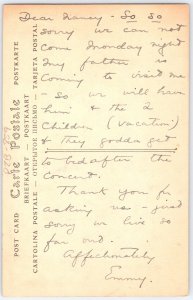 Dear Nancy - So so
sorry we can not
come Monday night
My father is
coming to visit me
- so we will have
him & the 2
children (vacation)
& they gotta get
to bed after the
concert.
Thank you for
asking us - just
sorry we live so
far out.
Affectionately
Emmy.
POST CARD Carte Postale POSTKARTE
BRIEFKAART POSTKAART
CARTOLINA POSTALE — ОТКРЫТОЕ ПИСЬМО — TARJETA POSTAL